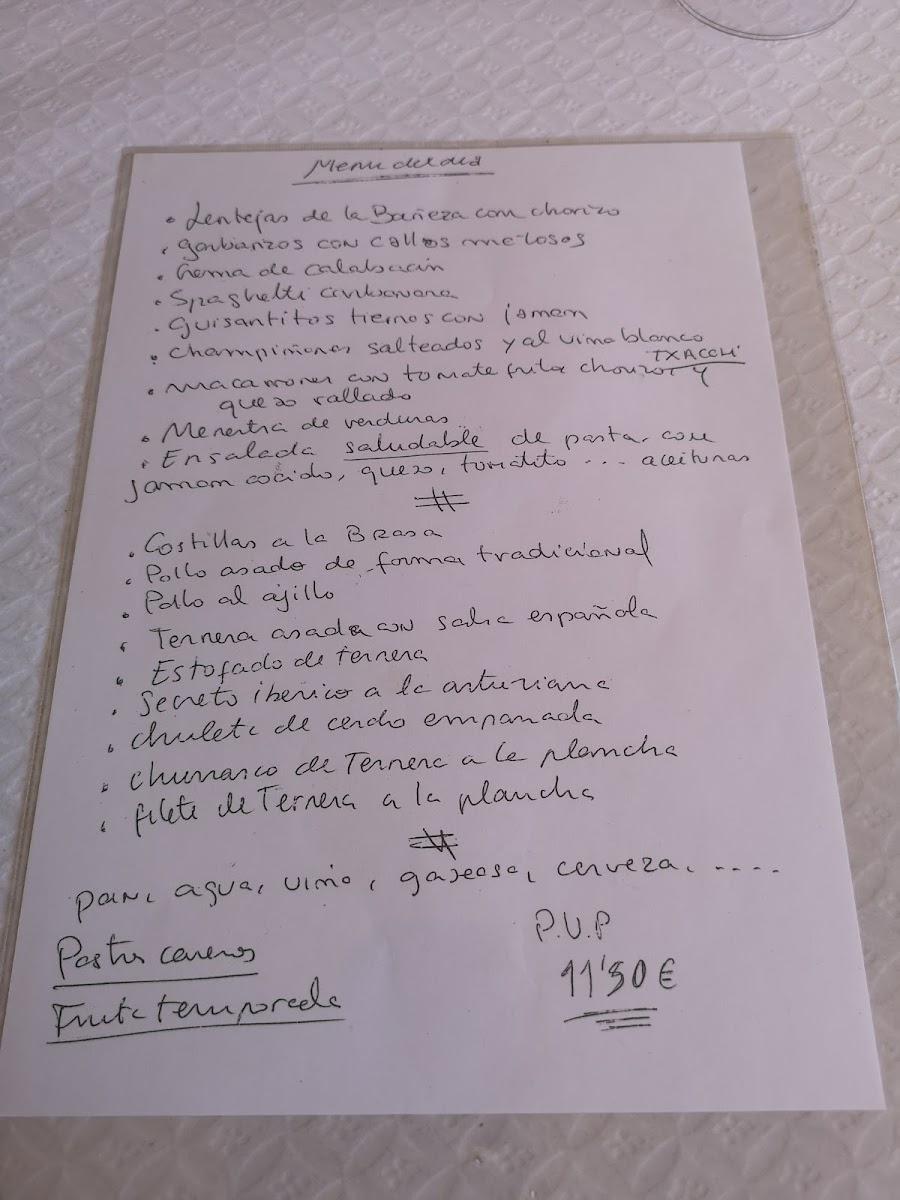 Menu del dia
• Lentejas de la Bañeza con chorizo
• garbanzos con callos melosos
• Crema de calabacin
• Spaghetti
• guisantitos tiernos con jamon
• champiñones salteados y al vino blanco
TXACOLI
• macarrones con tomate frito chorizo y
queso rallado
• Menestra de verduras
• Ensalada saludable de pasta con
jamon cocido, queso, tomatito ... aceitunas
#
• Costillas a la Brasa
• Pollo asado de forma tradicional
• Pollo al ajillo
• Ternera asada con salsa española
• Estofado de ternera
• Secreto iberico a la asturiana
• chuleta de cerdo empanada
• churrasco de Ternera a la plancha
• filete de Ternera a la plancha
#
pan, agua, vino, gaseosa, cerveza, ....
P.V.P
Postres caseros
11'50 €
Fruta temporada